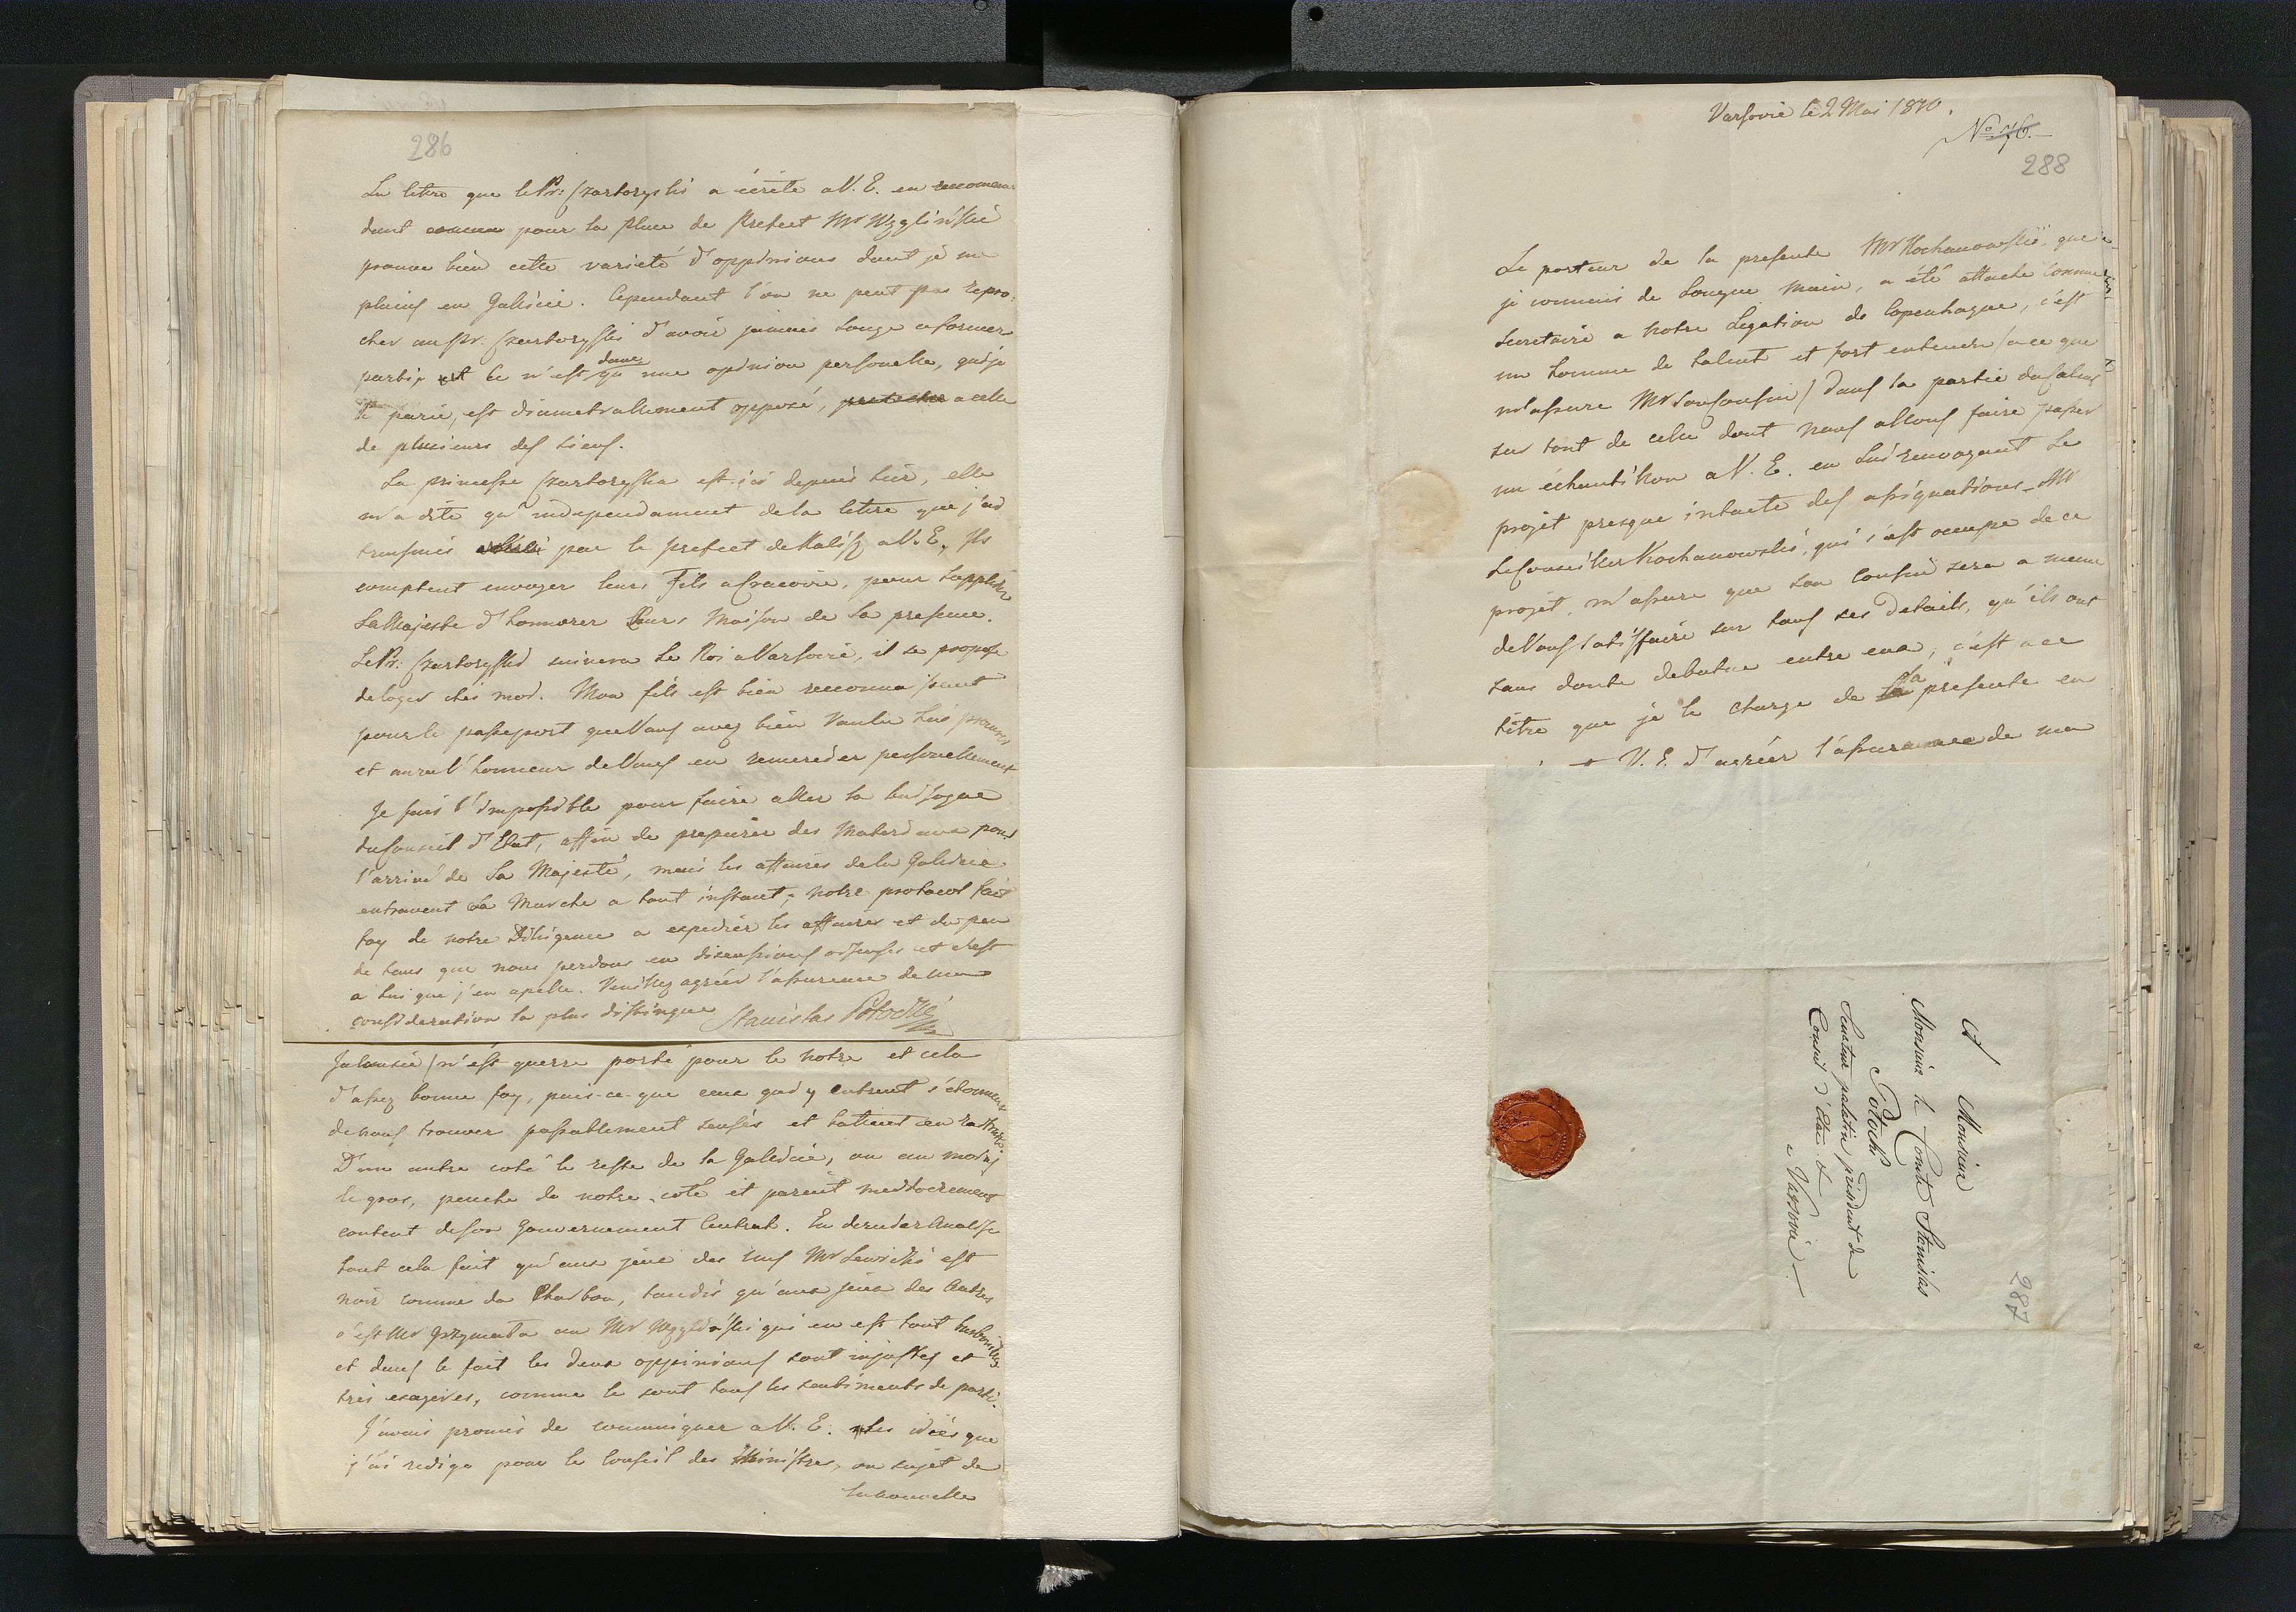 286
La lettre que le Pr: Czartoryski a écrite a V. E. en recomen-
dant pour la place de Prefect Mr Węgliński
prouve bien cette varieté d'oppinions dont je me
plains en Galicie. Cependant l'on ne peut pas repro-
cher au Pr. Czartoryski d'avoir jamais songe a former
parti, et ce n'est donc qu'une opinion personelle, qui je
le parie, est diametrallement opposé, a celle
de plusieurs des siens.
La princesse Czartoryska est ici depuis hier, elle
m'a dite qu'independament de la lettre que j'ai
transmis par le prefect de Kalisz a V. E. Ils
comptent envoyer leurs Fils a Cracovie, pour supplier
Sa Majeste d'honnorer leurs Maison de sa presence.
Le Pr: Czartoryski suivera le Roi a Varsovie, il se propose
de loger chés moi. Mon fils est bien reconnaissant
pour le passeport que Vous avez bien Voulu lui procurer
et aura l'honneur de Vous en remercier personellement
Je fais l'impossible pour faire aller la besogne
du Conseil d'Etat, affin de preparer des Materiaux pour
l'arrivé de Sa Majesté, mais les affaires de la Galicie
entravent la Marche a tout instant; notre protocol fait
foy de notre Diligence a expedier les affaires et du peu
de tems que nous perdons en discussions oiseuses et c'est
a lui que j'en apelle. Veuillez agréer l'assurence de ma
consideration la plus distingue Stanislas Potocki
Jalousie) n'est guerre porté pour le notre et cela
d'assez bonne foy, puis-ce-que ceux qui y entrent s'étonnent
de nous trouver passablement sensés et
D'un autre coté le reste de la Galicie, ou au moins
le gros, penche de notre coté et parait mediocrement
content de son Gouvernement Central. En dernier Analise
tout cela fait qu'aux yeux des uns Mr Lewicki est
noir comme du Charbon, tandis qu'aux yeux des Autres
c'est Mr Grzymała ou Mr Węgliński qui en est tout barbouillés
et dans le fait les deux oppinions sont injustes et
tres exagerés, comme le sont tous les sentiments de parti.
J'avais promis de communiquer a V. E. les idées que
j'ai redige pour le Conseil des Ministres, au sujet de
la nouvelle
Varsovie le 2 Mai 1810.
No 76.
288
Le porteur de la presente Mr Kochanowski, que
je connais de longue main, a été attaché comme
Secretaire a notre Legation de Copenhague, c'est
un homme de talent et fort entendu (a ce que
m'assure Mr ) dans la partie du Calcul
sur tout de celui dont nous allons faire passer
un échantillon a V. E. en lui renvoyant le
projet presque intacte des assignations. Mr
le Conseiller Kochanowski, qui s'est occupe de ce
projet, m'assure que son Cousin sera a meme
de Vous satisfaire sur tous ses details, qu'ils ont
sans doute debatue entre eux, c'est a ce
titre que je le charge de la presente en
V. E. d'agréer l'assurence de ma
A Monsieur
Monsieur le Comte Stanislas
Potocki
Senateur palatin president de
Conseil d'Etat &
a Varsovie
287